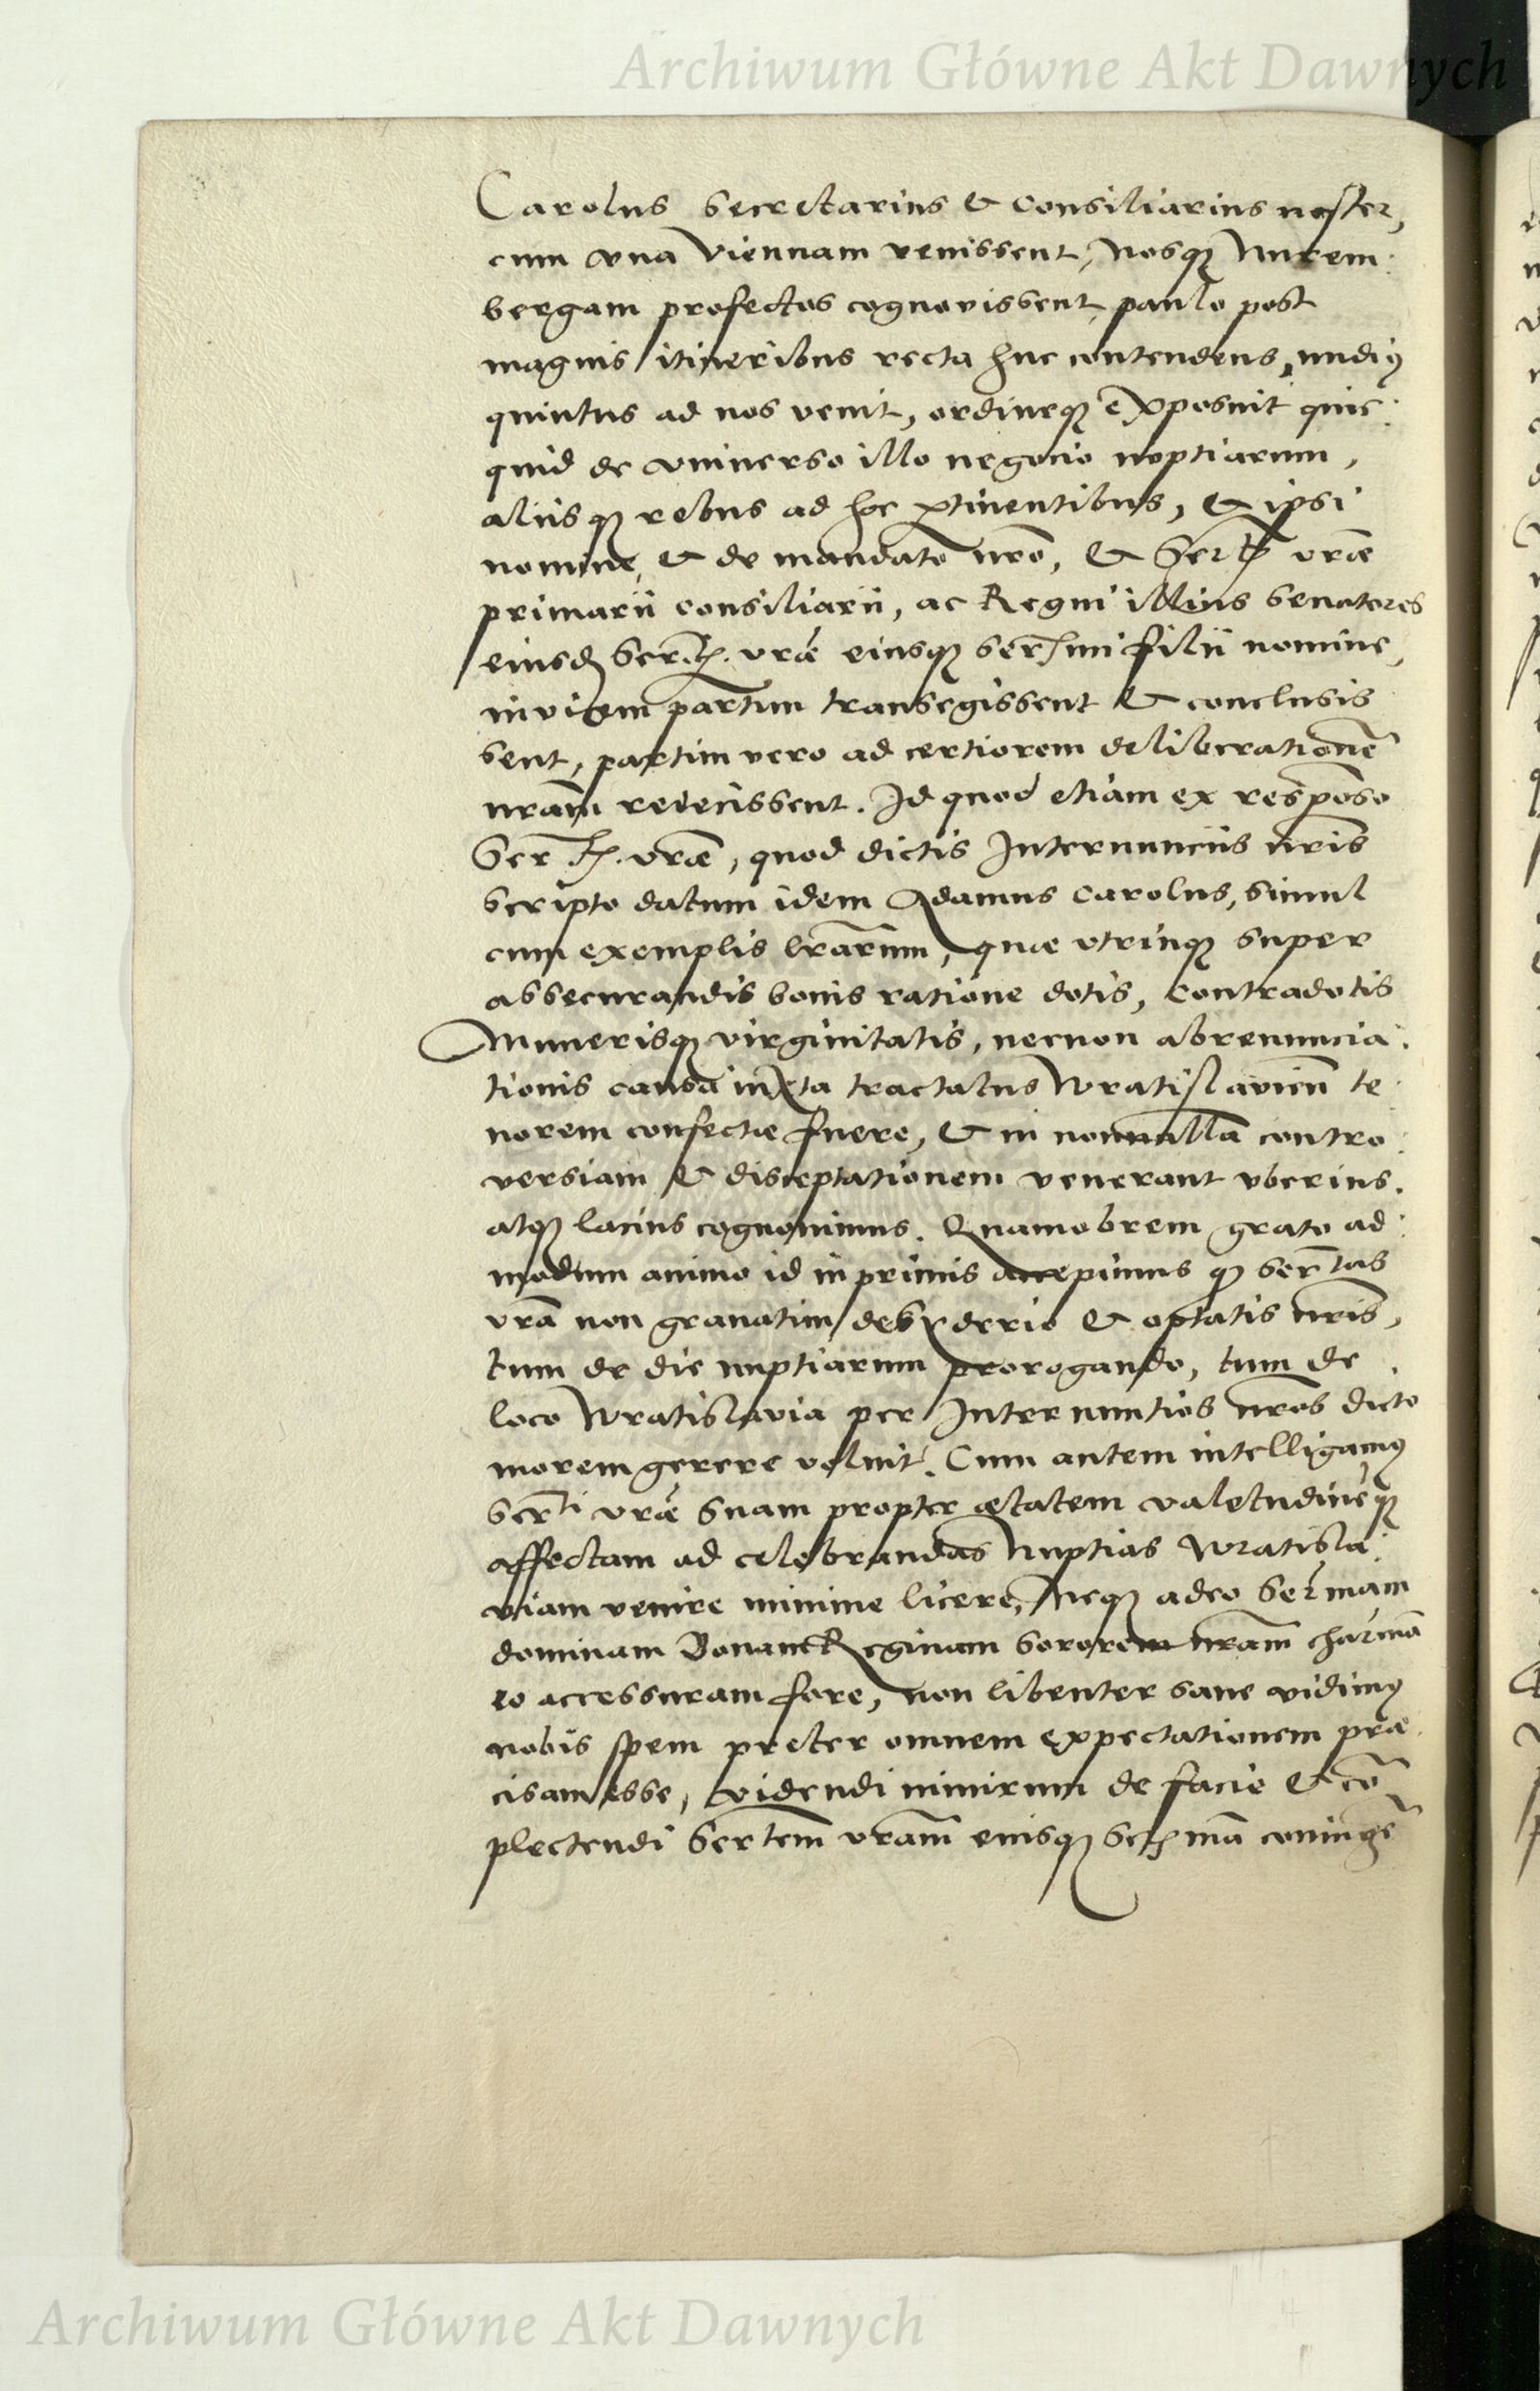 Archiwum Główne Akt Dawnych
Carolus Secretarius & Consiliarius noster,
cum vna Viennam venissent, Nosq3 Nurem:
bergam profectos cognovissent, paulo post
magnis itineribus recta huc contendens, nudi9
quintus ad nos venit, ordineq3 exposuit quic:
quid de vniverso illo negocio nuptiarum,
aliisq3 rebus ad hoc ꝑtinentibus, & ipsi
nomine, & de mandato nrō, & Ser.tis vrāe
primarii Consiliarii, ac Regni illius Senatores
eiusd. Ser.tis. vrāe eiusq3 Sermi filii nomine,
invicem partim transegissent & conclusis
sent, partim vero ad certiorem deliberationē
nrām reiecissent. Id quod etiam ex responso
Ser.tis. vrāe, quod dictis Internunciis nrīs
scripto datum idem Adamus Carolus, simul
cum exemplis lrārum, quae vtrinq3 super
assecurandis bonis ratione dotis, Contradotis
Munerisq3 virginitatis, necnon abrenuncia:
tionis causa iuxta tractatus Wratislavien̄ te:
norem confectae fuere, & in nonnullā contro:
versiam & disceptationem venerant vberius.
atq3 latius cognovimus. Quamobrem grato ad:
modum animo id inprimis accepimus q3 Sertas
vrā non gravatim desyderio & optatis nrīs,
tum de die nuptiarum prorogando, tum de
loco Wratislavia per Internuntios nrōs dicto
morem gerere voluit. Cum autem intelligam9
Serti vrāe suam propter aetatem valetudinēq3
affectam ad celebrandas Nuptias Wratisla:
viam venire minime licere, Neq3 adeo Sermam
dominam Bonam Reginam sororem nrām charmā
eo accessuram fore, non libenter sane vidim9
nobis spem preter omnem expectationem prae
cisam esse, videndi nimirum de facie & cō
plectendi Sertem vrām eiusq3 Sermā coniugē
Archiwum Główne Akt Dawnych